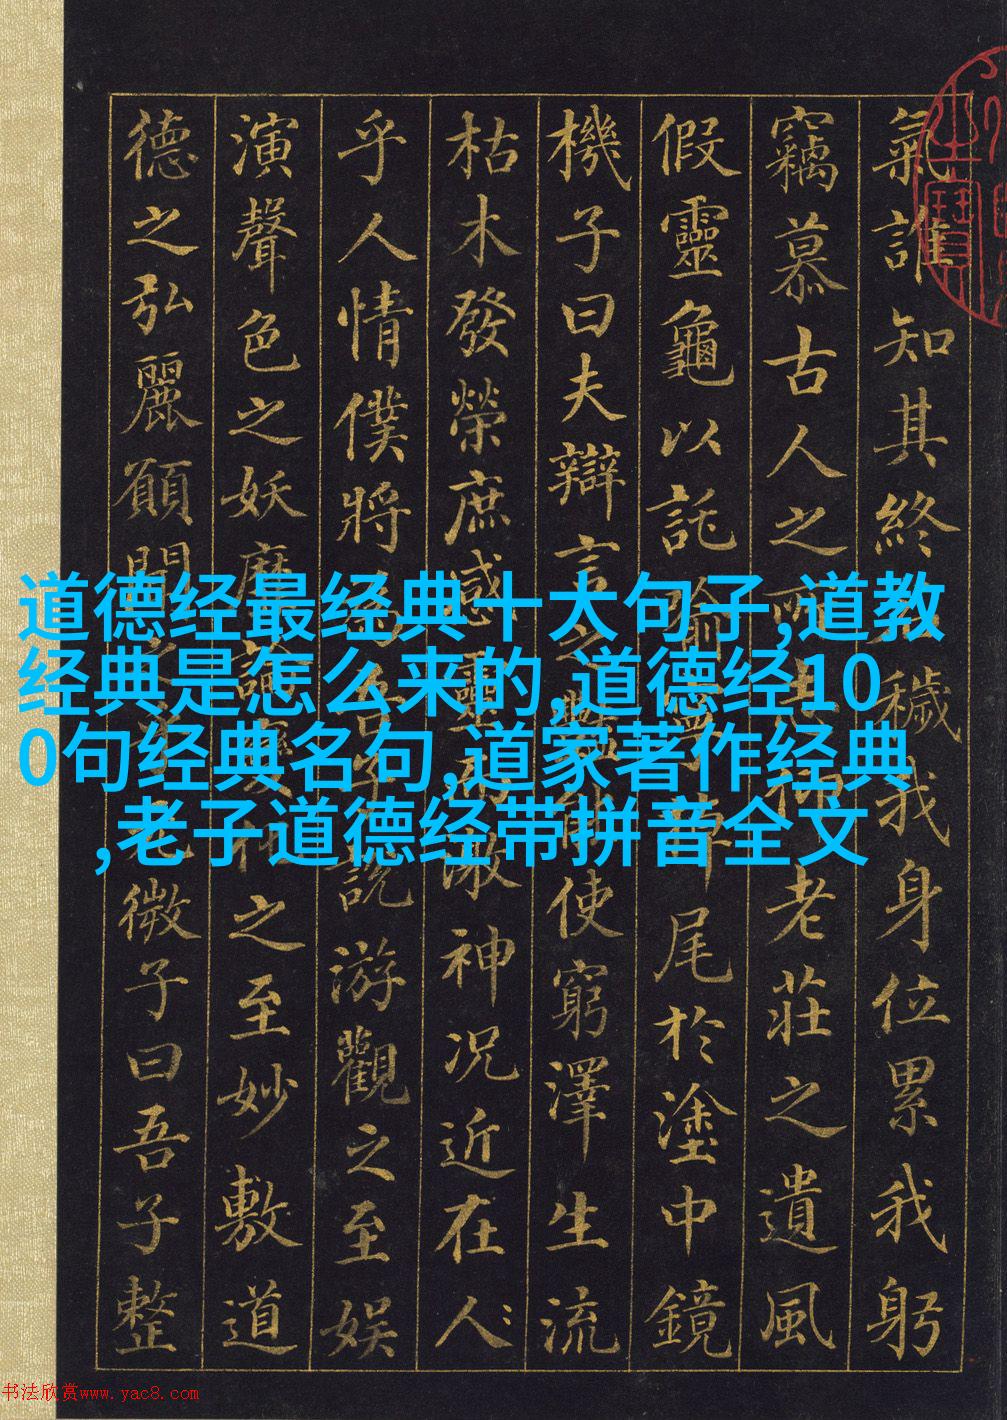 道德经最经典十大句子,道教
经典是怎么来的,道德经10
0句经典名句,道家著作经典
,老子道德经带拼音全文
氣誰知其終穢我身位累我躬
竊慕古人之所老莊之遺風
假靈龜以託尾於塗中鏡
機子曰夫辯言之使窮澤生流
枯木發榮庶感靈激神況近在人
乎人情僕將說游觀之至娛
演聲色之妖靡之至妙敷道
德之弘麗願聞微子曰吾子整
书法欣赏www.yac8.com